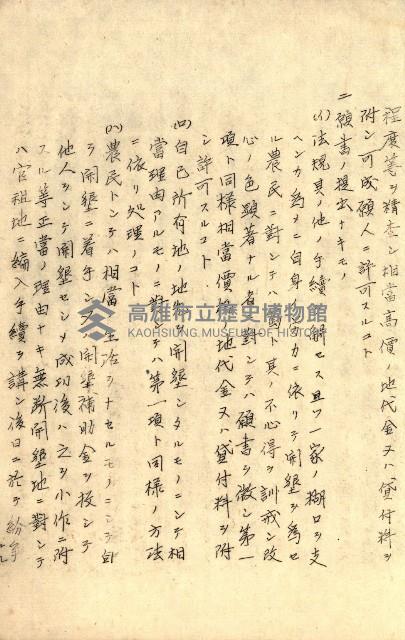 程度等ヲ精査シ相當高價ノ地代金又ハ貸付料ヲ
附シ可成願人ニ許可スルコト
二願書ノ提出ナキモノ
(イ)法規其ノ他ノ手續ヲ解セス且ツ一家ノ糊口ヲ支
ヘンカ為メニ自身ノ カニ依リテ開墾ヲ為セ
ル農民ニ對シテハ 其ノ不心得ヲ訓戒シ改
心ノ色顕著ナル者ニ對シテハ願書ヲ徴シ第一
項ト同様相當價格ノ地代金又ハ貸付料ヲ附
シ許可スルコト
(ロ)自己所有地ノ地先ヲ開墾シタルモノニシテ相
當理由アルモノニ對シテハ第一項ト同様ノ方法
ニ依リ處理ノコト
(ハ)農民トシテハ相當ノ生活ヲナセルモノニシテ自
ラ開墾ニ着手シ又ハ開墾補助金ヲ投シテ
他人ヲシテ開墾セシメ成功後ハ之ヲ小作ニ附
スル等正當ノ理由ナキ無断開墾地ニ對シテ
ハ官租地ニ編入手續ヲ講シ後日ニ於テ紛争
高雄市立歷史博物館
KAOHSIUNG MUSEUM OF HISTORY